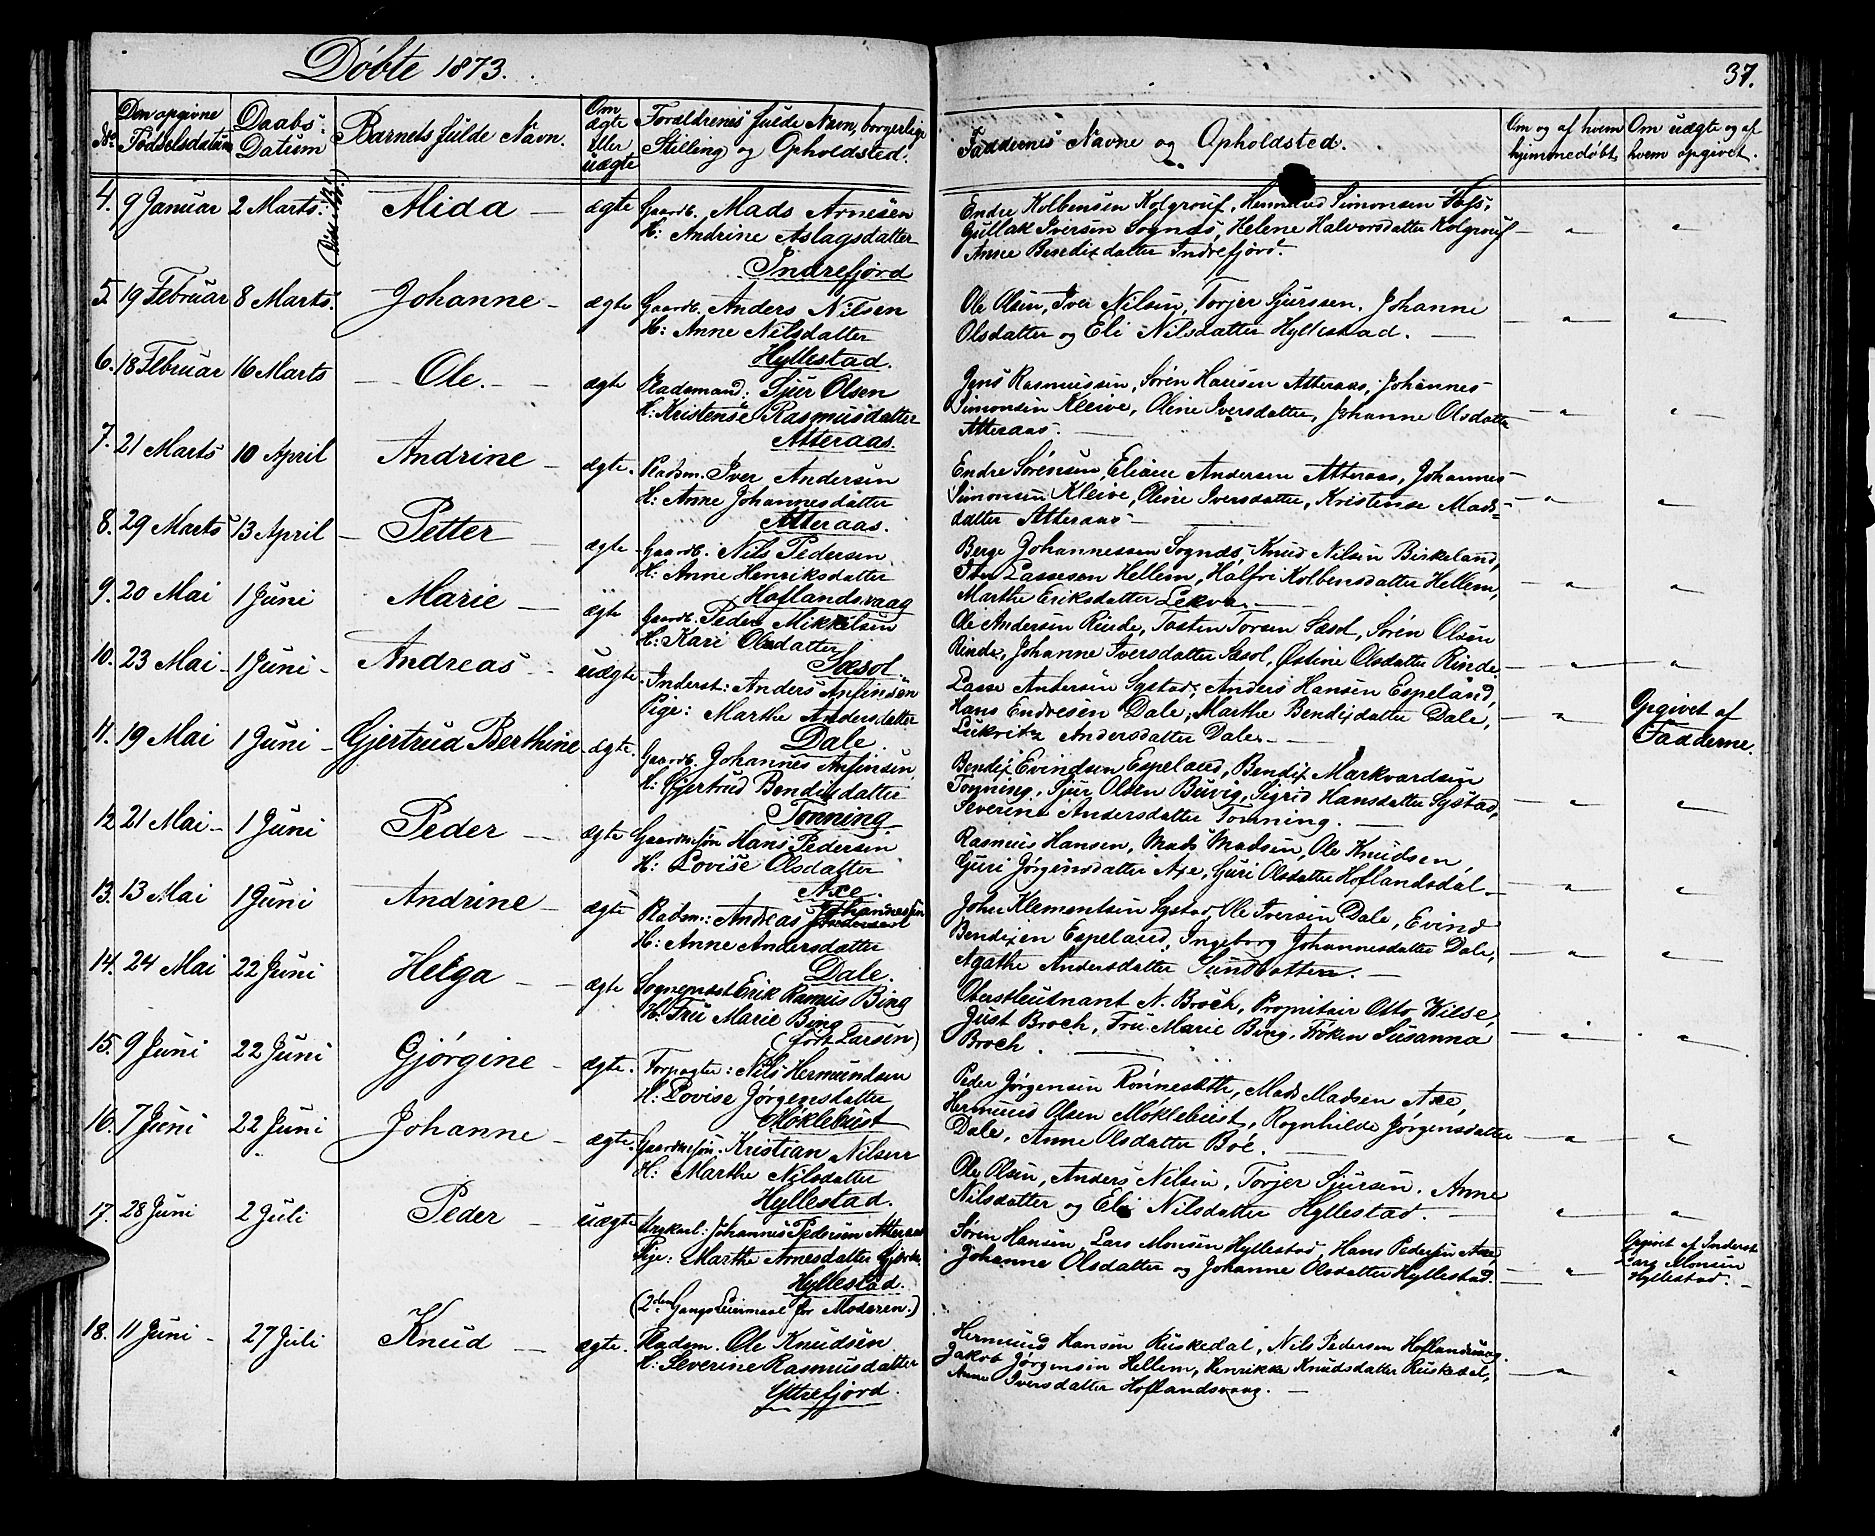 Döbte 1873.
37.
No Den opgivne Fødselsdatum
Daabs-Datum
Barnets fulde Navn.
Om ægte eller uægte
Forældrenes fulde Navn, borgerlige Stilling og Opholdsted.
Faddernes Navne og Opholdsted.
Om og af hvem hjemmedøbt
Om uægte og af hvem opgivet.
4. 9 Januar 2 Marts. Alida – ægte Gaardb. Mads Arnesen
H: Andrine Aslagsdatter
Indrefjord
Endre Kolbensen Kolgrouf, Simonsen
Gullak Iversen Sognds, Helene Halvorsdatter Kolgrouf – " – "
Anne Bendixdatter Indrefjord.
5. 19 Februar 8 Marts. Johanne – ægte Gaardb. Anders Nilsen
H: Anne Nilsdatter
Hyllestad.
Ole Olsen, Iver Nilsen, Torjer Sjurssen. Johanne
Olsdatter og Eli Nilsdatter Hyllestad. – " – "
6. 18 Februar 16 Marts – Ole. – ægte Pladsmand: Sjur Olsen
H: Kristense Rasmusdatter
Atteraas.
Jens Rasmussen, Søren Hansen Atteraas, Johannes
Simonsen Kleive, Oline Iversdatter, Johanne Olsdatter – " – "
Atteraas. –
7. 21 Marts 10 April Andrine – ægte. Pladsm. Iver Andersen
H: Anne Johannesdatter
Atteraas.
Endre Sørensen, Andersen Atteraas, Johannes
Simonsen Kleive, Oline Iversdatter, Kristense Mads- – " – "
datter Atteraas –
8. 29 Marts 13 April – Petter – ægte – Gaardb. Nils Pedersen
H: Anne Henriksdatter
Hoflandsvaag
Berge Johannessen Sognds, Knud Nilsen Birkeland,
Lassesen Hellem, Halfri Kolbensdatter Hellem, – " – "
Marthe Eriksdatter Lekva. –
9. 20 Mai 1 Juni Marie – ægte Gaardb. Peder Mikkelsen
H: Kari Olsdatter
Sæsol.
Ole Andersen Rinde, Tosten Torsen Sæsol, Søren Olsen
Rinde, Johanne Iversdatter Sæsol, Østine Olsdatter Rinde. – " – "
10. 23 Mai – 1 Juni – Andreas – uægte – Inderst: Anders Anfinsen
Pige: Marthe Andersdatter
Dale.
Lasse Andersen Systad, Anders Hansen Espeland,
Hans Endresen Dale, Marthe Bendixdatter Dale, – " –
Andersdatter Dale. –
Opgivet af
Fadderne.
11. 19 Mai 1 Juni – Gjertrud Berthine – ægte. Gaardb. Johannes Anfinsen
H: Gjertrud Bendixdatter
Tonning
Bendix Evindsen Espeland, Bendix Markvardsen
Tonning, Sjur Olsen Buvig, Sigrid Hansdatter Systad, – " – "
Severine Andersdatter Tonning. –
12 21 Mai – 1 Juni Peder – ægte Gaardmsøn Hans Pedersen
H: Lovise Olsdatter
Axe.
Rasmus Hansen, Mads Madsen, Ole Knudsen,
Guri Jørgensdatter Axe, Guri Olsdatter Hoflandsdal. – " – "
13. 13 Mai 1 Juni Andrine – ægte Pladsm.: Andreas Johannessen
H: Anne Andersdatter
Dale.
John Klementsen Systad, Ole Iversen Dale, Evind
Bendixen Espeland, Ingeborg Johannesdatter Dale, – " – "
Agathe Andersdatter Sundbotten. –
14. 24 Mai 22 Juni Helga – ægte Sogneprest Erik Rasmus Bing
H: Fru Marie Bing
(født Larsen)
Oberstleutnant N. Broch, Propritær Otto Wilse,
Just Broch, Fru Marie Bing, Frøken Susanna
Broch –
15. 9 Juni 22 Juni Gjörgine – ægte. Forpagter: Nils Hermundsen
H: Lovise Jørgensdatter
Møklebust
Peder Jørgensen, Mads Madsen Axe,
Hermund Olsen Møklebust, Rognhilde Jørgensdatter
Dale, Anne Olsdatter Boe. – " – "
16. 7 Juni 22 Juni Johanne – ægte. Gaardmsøn. Kristian Nilsen
H: Marthe Nilsdatter
Hyllestad.
Ole Olsen, Anders Nilsen, Torjer Sjursen. Anne
Nilsdatter og Eli Nilsdatter Hyllestad. – " – "
17. 28 Juni 2 Juli Peder – uægte Ungkarl: Johannes Pedersen Atteraas
Pige: Marthe Arnesdatter
Hyllestad.
(2den Gangs Leiermaal for Moderen.)
Søren Hansen, Lars Monsen Hyllestad, Hans Pedersen Axe,
Johanne Olsdatter og Johanne Olsdatter Hyllestad. – " –
Opgivet af Inderst
Lars Monsen
Hyllestad. –
18. 11 Juni – 27 Juli Knud – ægte. Pladsm. Ole Knudsen
H: Severine Rasmusdatter
Yttrefjord.
Hermund Hansen Ruskedal, Nils Pedersen Hoflandsvaag.
Jakob Jørgensen Hellem, Henrikke Knudsdatter Ruskedal,
Anne Iversdatter Hoflandsvaag. – " "